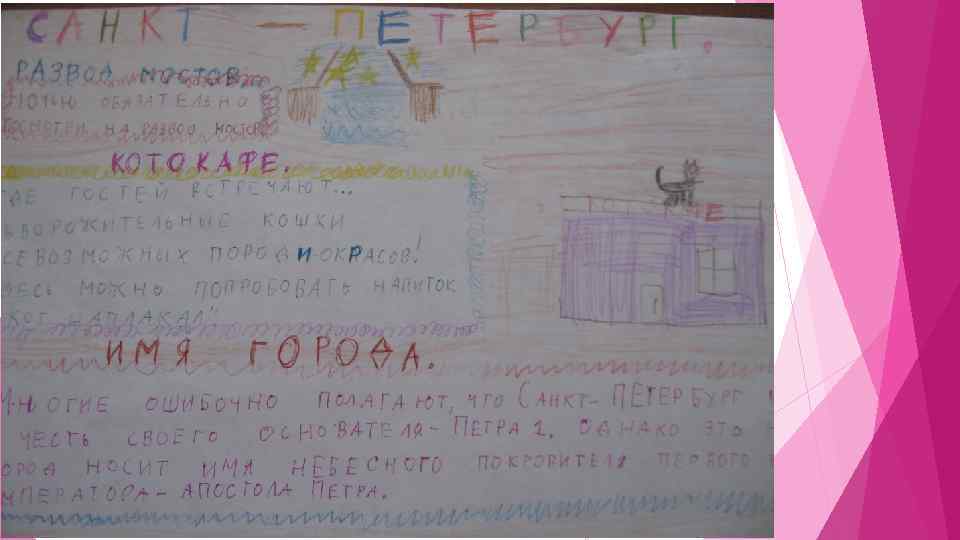 САНКТ - ПЕТЕРБУРГ.
РАЗВОД МОСТОВ
НОЧЬЮ ОБЯЗАТЕЛЬНО
ПОСМОТРИ НА РАЗВОД МОСТОВ
КОТОКАФЕ.
ГДЕ ГОСТЕЙ ВСТРЕЧАЮТ...
ВОРОЖИТЕЛЬНЫЕ КОШКИ
СЕВОЗМОЖНЫХ ПОРОД И ОКРАСОВ!
ДЕСЬ МОЖНО ПОПРОБОВАТЬ НАПИТОК
КОТ НАПЛАКАЛ"
ИМЯ ГОРОДА.
МНОГИЕ ОШИБОЧНО ПОЛАГАЮТ, ЧТО САНКТ-ПЕТЕРБУРГ
ЧЕСТЬ СВОЕГО ОСНОВАТЕЛЯ-ПЕТРА 1. ОДНАКО ЭТО
ОРОД НОСИТ ИМЯ НЕБЕСНОГО ПОКРОВИТЕЛЯ ПЕРВОГО
МПЕРАТОРА-АПОСТОЛА ПЕТРА.